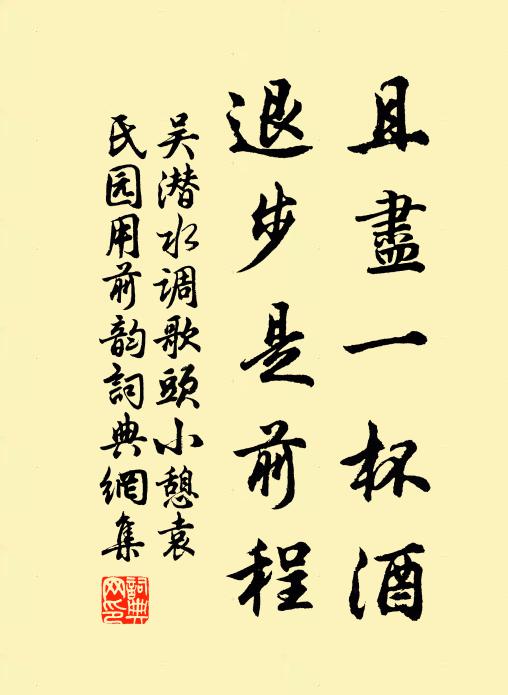 且盡一杯酒
退步是前程
吴潜水调歌頭小憩袁
氏园用前韵詞典網集